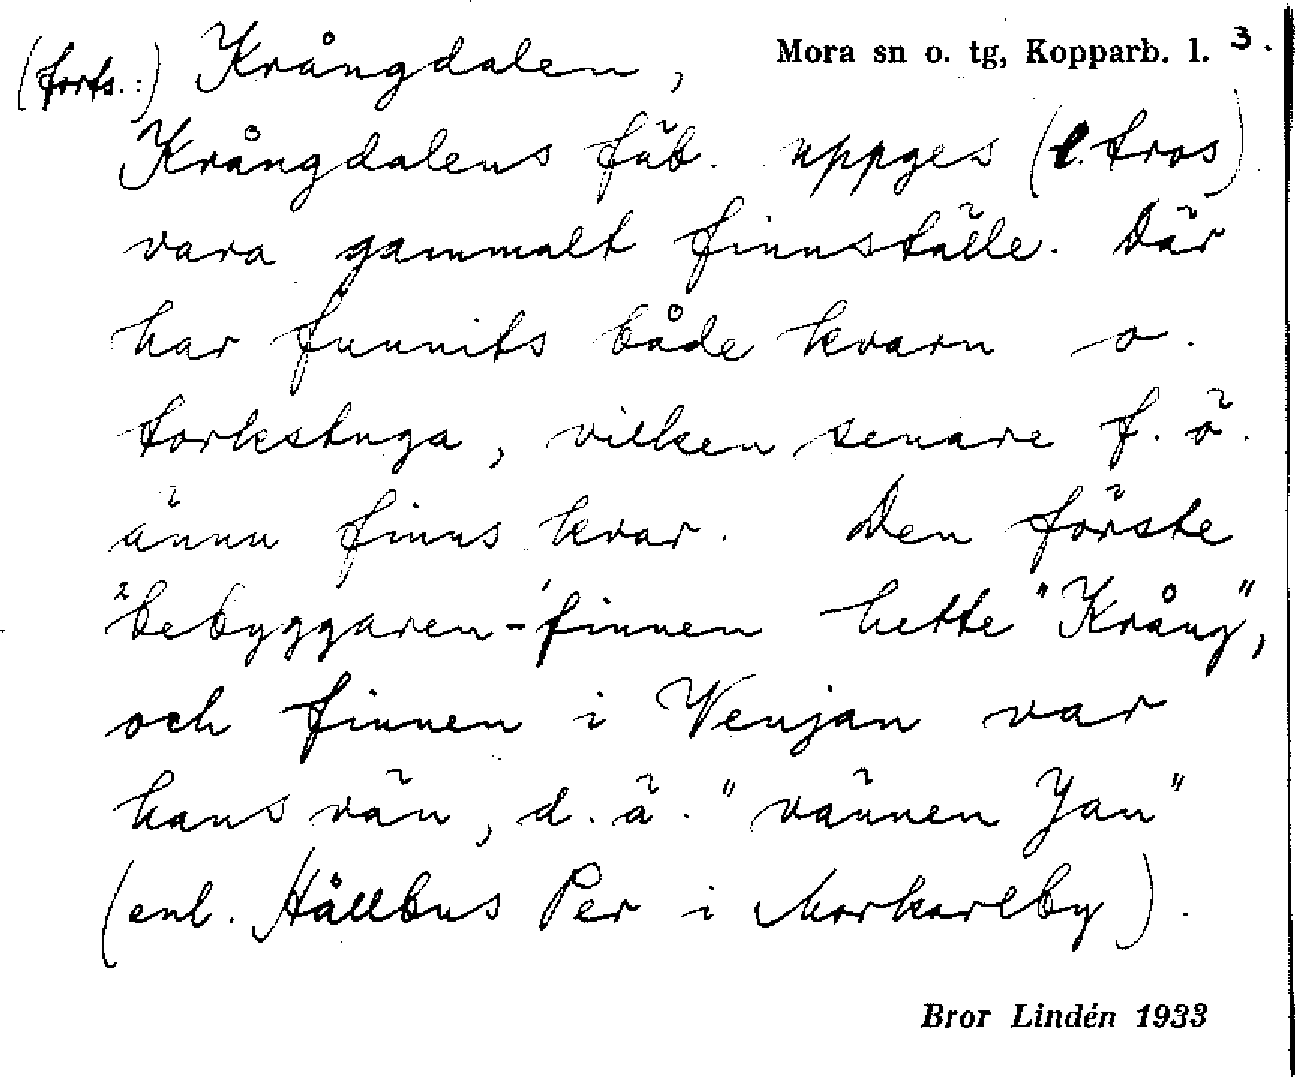 (forts.:) Krångdalen, Mora sn o. tg, Kopparb. l. 3.
Krångdalens fäb. uppges (l. tros)
vara gammalt finnställe. Där
har funnits både kvarn o.
torkstuga, vilken senare f. ö.
ännu finns kvar. Den förste
bebyggaren-finnen hette "Krång",
och finnen i Venjan var
hans vän, d. ä. "vännen Jan"
(enl. Hållbus Per i Morkarlby).
Bror Lindén 1933